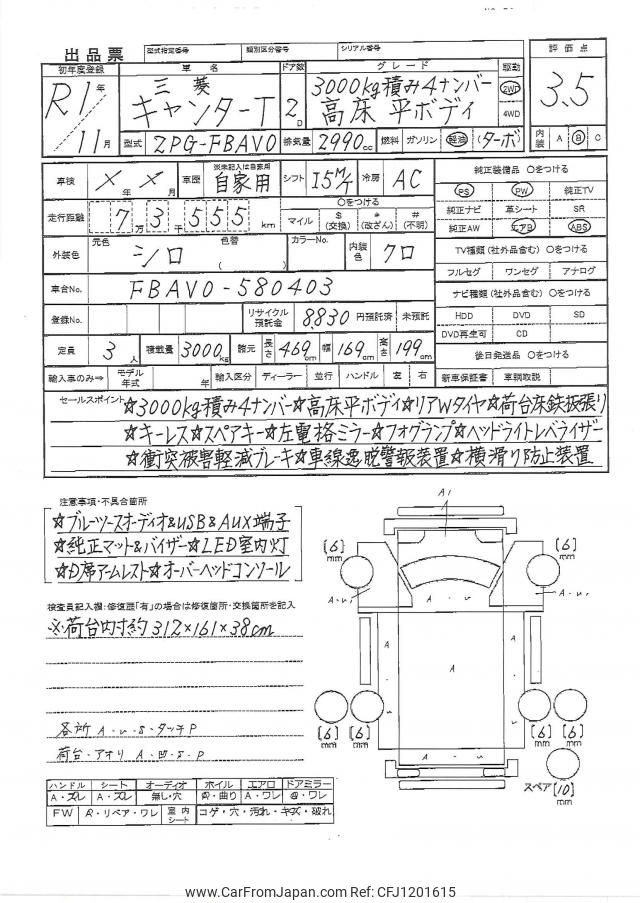 出品票 型式指定番号 類別区分番号 シリアル番号
初年度登録 車名 ドア数 グレード 駆動 評価点
R1年 三菱 3000kg積み4ナンバー 2WD 3.5
11月 キャンターT 2D 高床 平ボディ 4WD
型式 2PG-FBAV0 排気量 2990cc 燃料 ガソリン 軽油 (ターボ) 内装 A B C
車検 ×年×月 車歴 ※未記入は自家用 自家用 シフト I5M/T 冷房 AC 純正装備品 〇をつける
PS PW 純正TV
走行距離 7万3千555km マイル 〇をつける $(交換) *(改ざん) #(不明) 純正ナビ 革シート SR
純正AW エアB ABS
外装色 元色 シロ 色替 ( ) カラーNo. 内装色 クロ TV種類(社外品含む)〇をつける
フルセグ ワンセグ アナログ
車台No. FBAV0-580403 ナビ種類(社外品含む)〇をつける
登録No. リサイクル預託金 8,830円預託済 未預託 HDD DVD SD
DVD再生可 CD
定員 3人 積載量 3000kg 諸元 長さ 469cm 幅 169cm 高さ 199cm 後日発送品 〇をつける
輸入車のみ⇒ モデル年式 年 輸入区分 ディーラー 並行 ハンドル 左 右 新車保証書 車輌取説
セールスポイント ☆3000kg積み4ナンバー☆高床平ボディ☆リアWタイヤ☆荷台床鉄板張り
☆キーレス☆スペアキー☆左電格ミラー☆フォグランプ☆ヘッドライトレベライザー
☆衝突被害軽減ブレーキ☆車線逸脱警報装置☆横滑り防止装置
注意事項・不具合箇所
☆ブルーツースオーディオ&USB&AUX端子
☆純正マット&バイザー☆LED室内灯
☆D席アームレスト☆オーバーヘッドコンソール
検査員記入欄:修復歴「有」の場合は修復箇所・交換箇所を記入
※荷台内寸約312×161×38cm
各所 A・U・S・タッチP
荷台・アオリ A・凹・S・P
ハンドル シート オーディオ ホイル エアロ ドアミラー
A・ズレ A・ズレ 無し・穴 ・曲り A・ワレ ・ワレ
FW ・リペア・ワレ 室内シート コゲ・穴・汚れ・キズ・破れ
A1
[6]mm [6]mm
A・U1 A・U1
A・U
A A A
[6]mm [6]mm [6]mm [6]mm
A・U
スペア[10]mm
www.CarFromJapan.com Ref: CFJ1201615